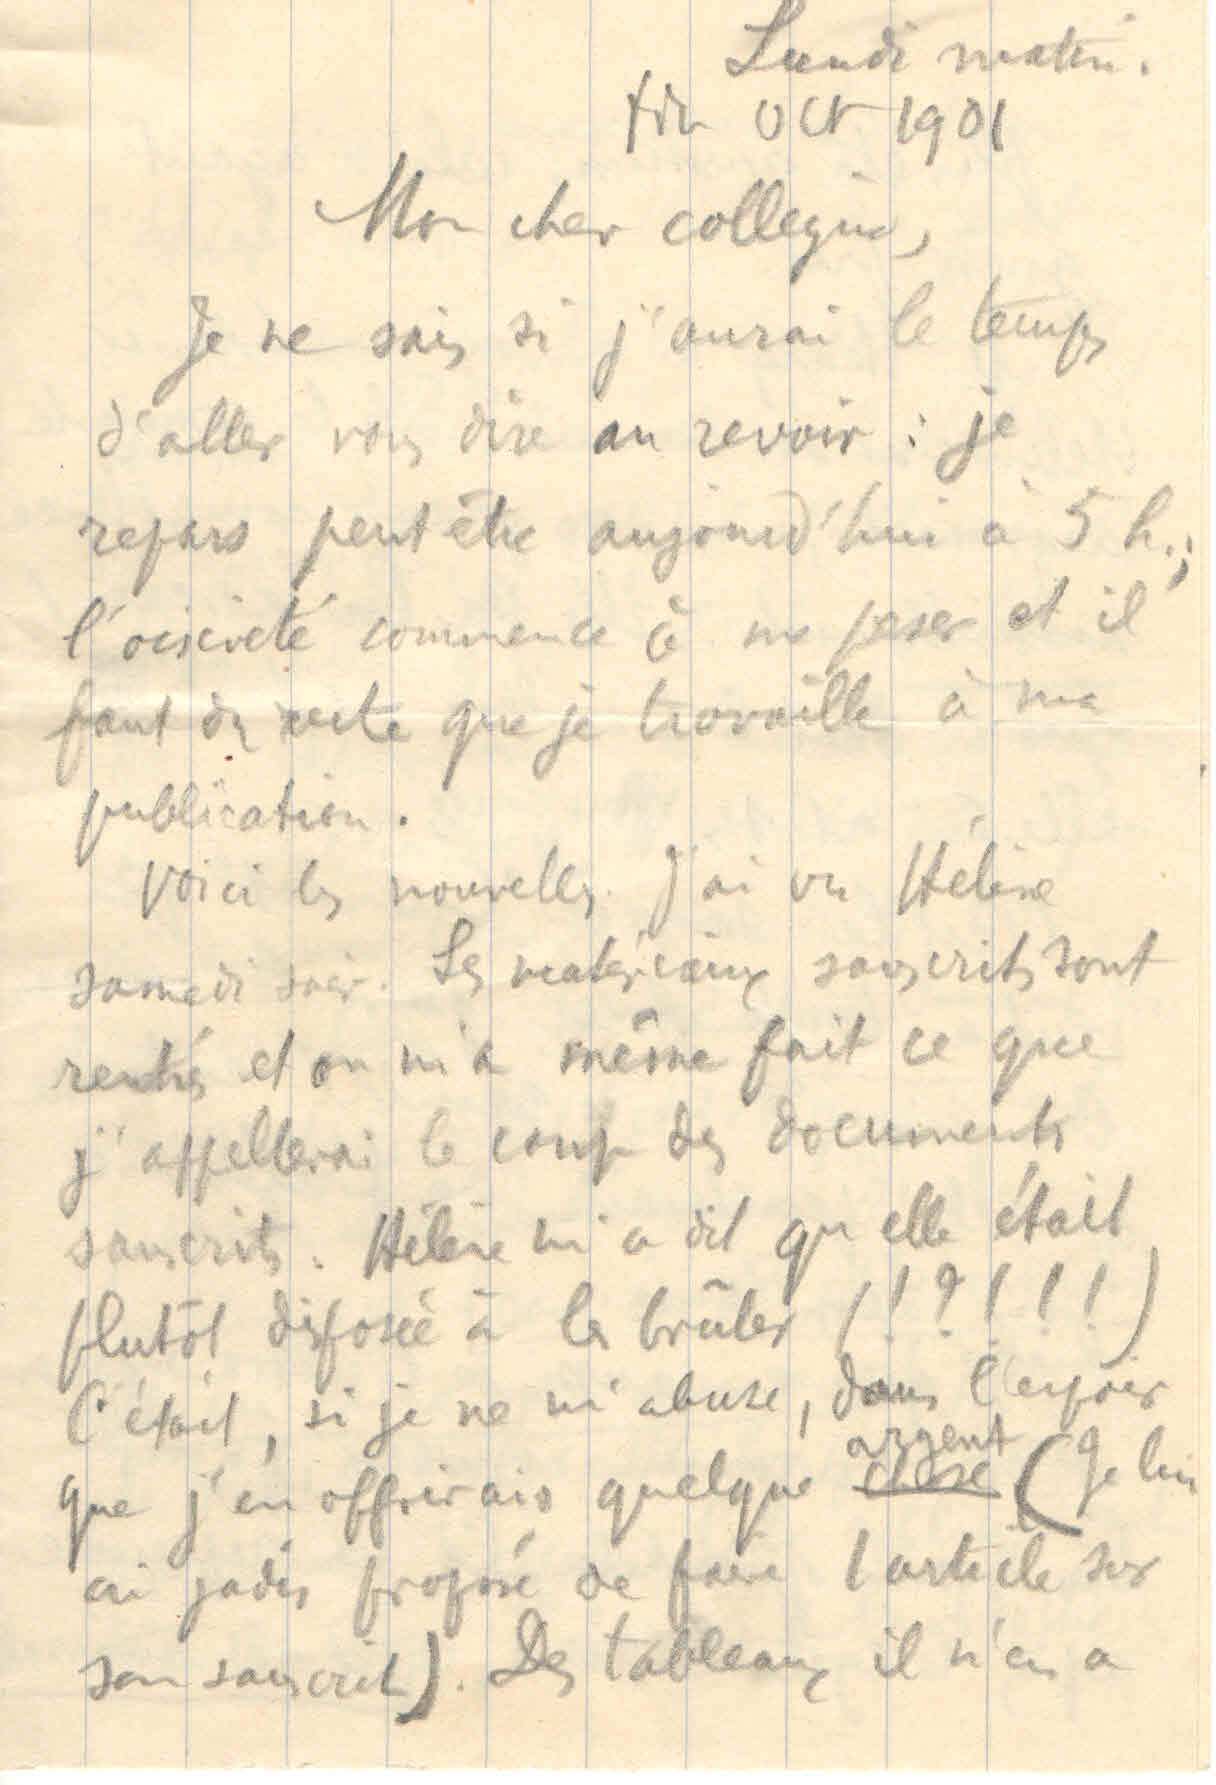 Lundi matin.
fin oct 1901
Mon cher collègue,
Je ne sais si j'aurai le temps
d'aller vous dire au revoir : je
repars peut être aujourd'hui à 5 h.;
l'oisiveté commence à me peser et il
faut du reste que je travaille à ma
publication.
Voici les nouvelles. J'ai vu Hélène
samedi soir. Les matériaux sanscrits sont
rentrés et on m'a même fait ce que
j'appellerai le coup des documents
sanscrits. Hélène m'a dit qu'elle était
plutôt disposée à les brûler (!?!!!)
C'était, si je ne m'abuse, dans l'espoir
que j'en offrirais quelque chose argent (Je lui
ai jadis proposé de faire 1 article sur
son sanscrit). Des tableaux il n'en a